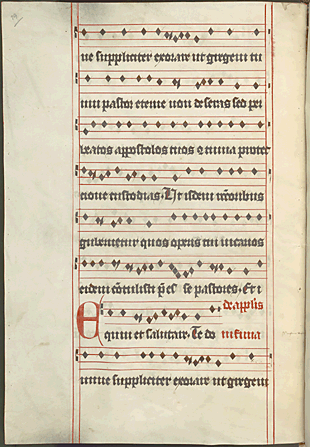 ne suppliciter exorare ut gregem tu
um pastor eterne non deseras sed per
beatos appostolos tuos continua protec
cione custodias. Ut isdem rectoribus
gubernetur quos operis tui vicarios
eidem contulisti preesse pastores. Et i
de applis
Equum et salutare. Te do infima
mine suppliciter exorare ut gregem